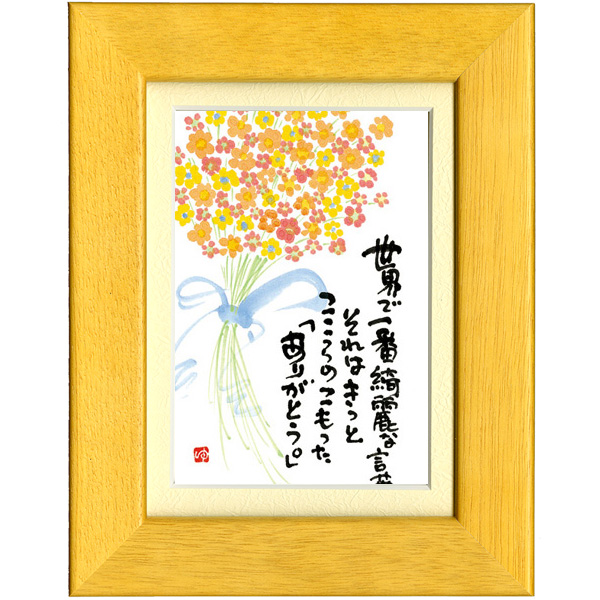 世界で一番綺麗な言葉
それはきっと
こころのこもった
「ありがとう。」
ゆ